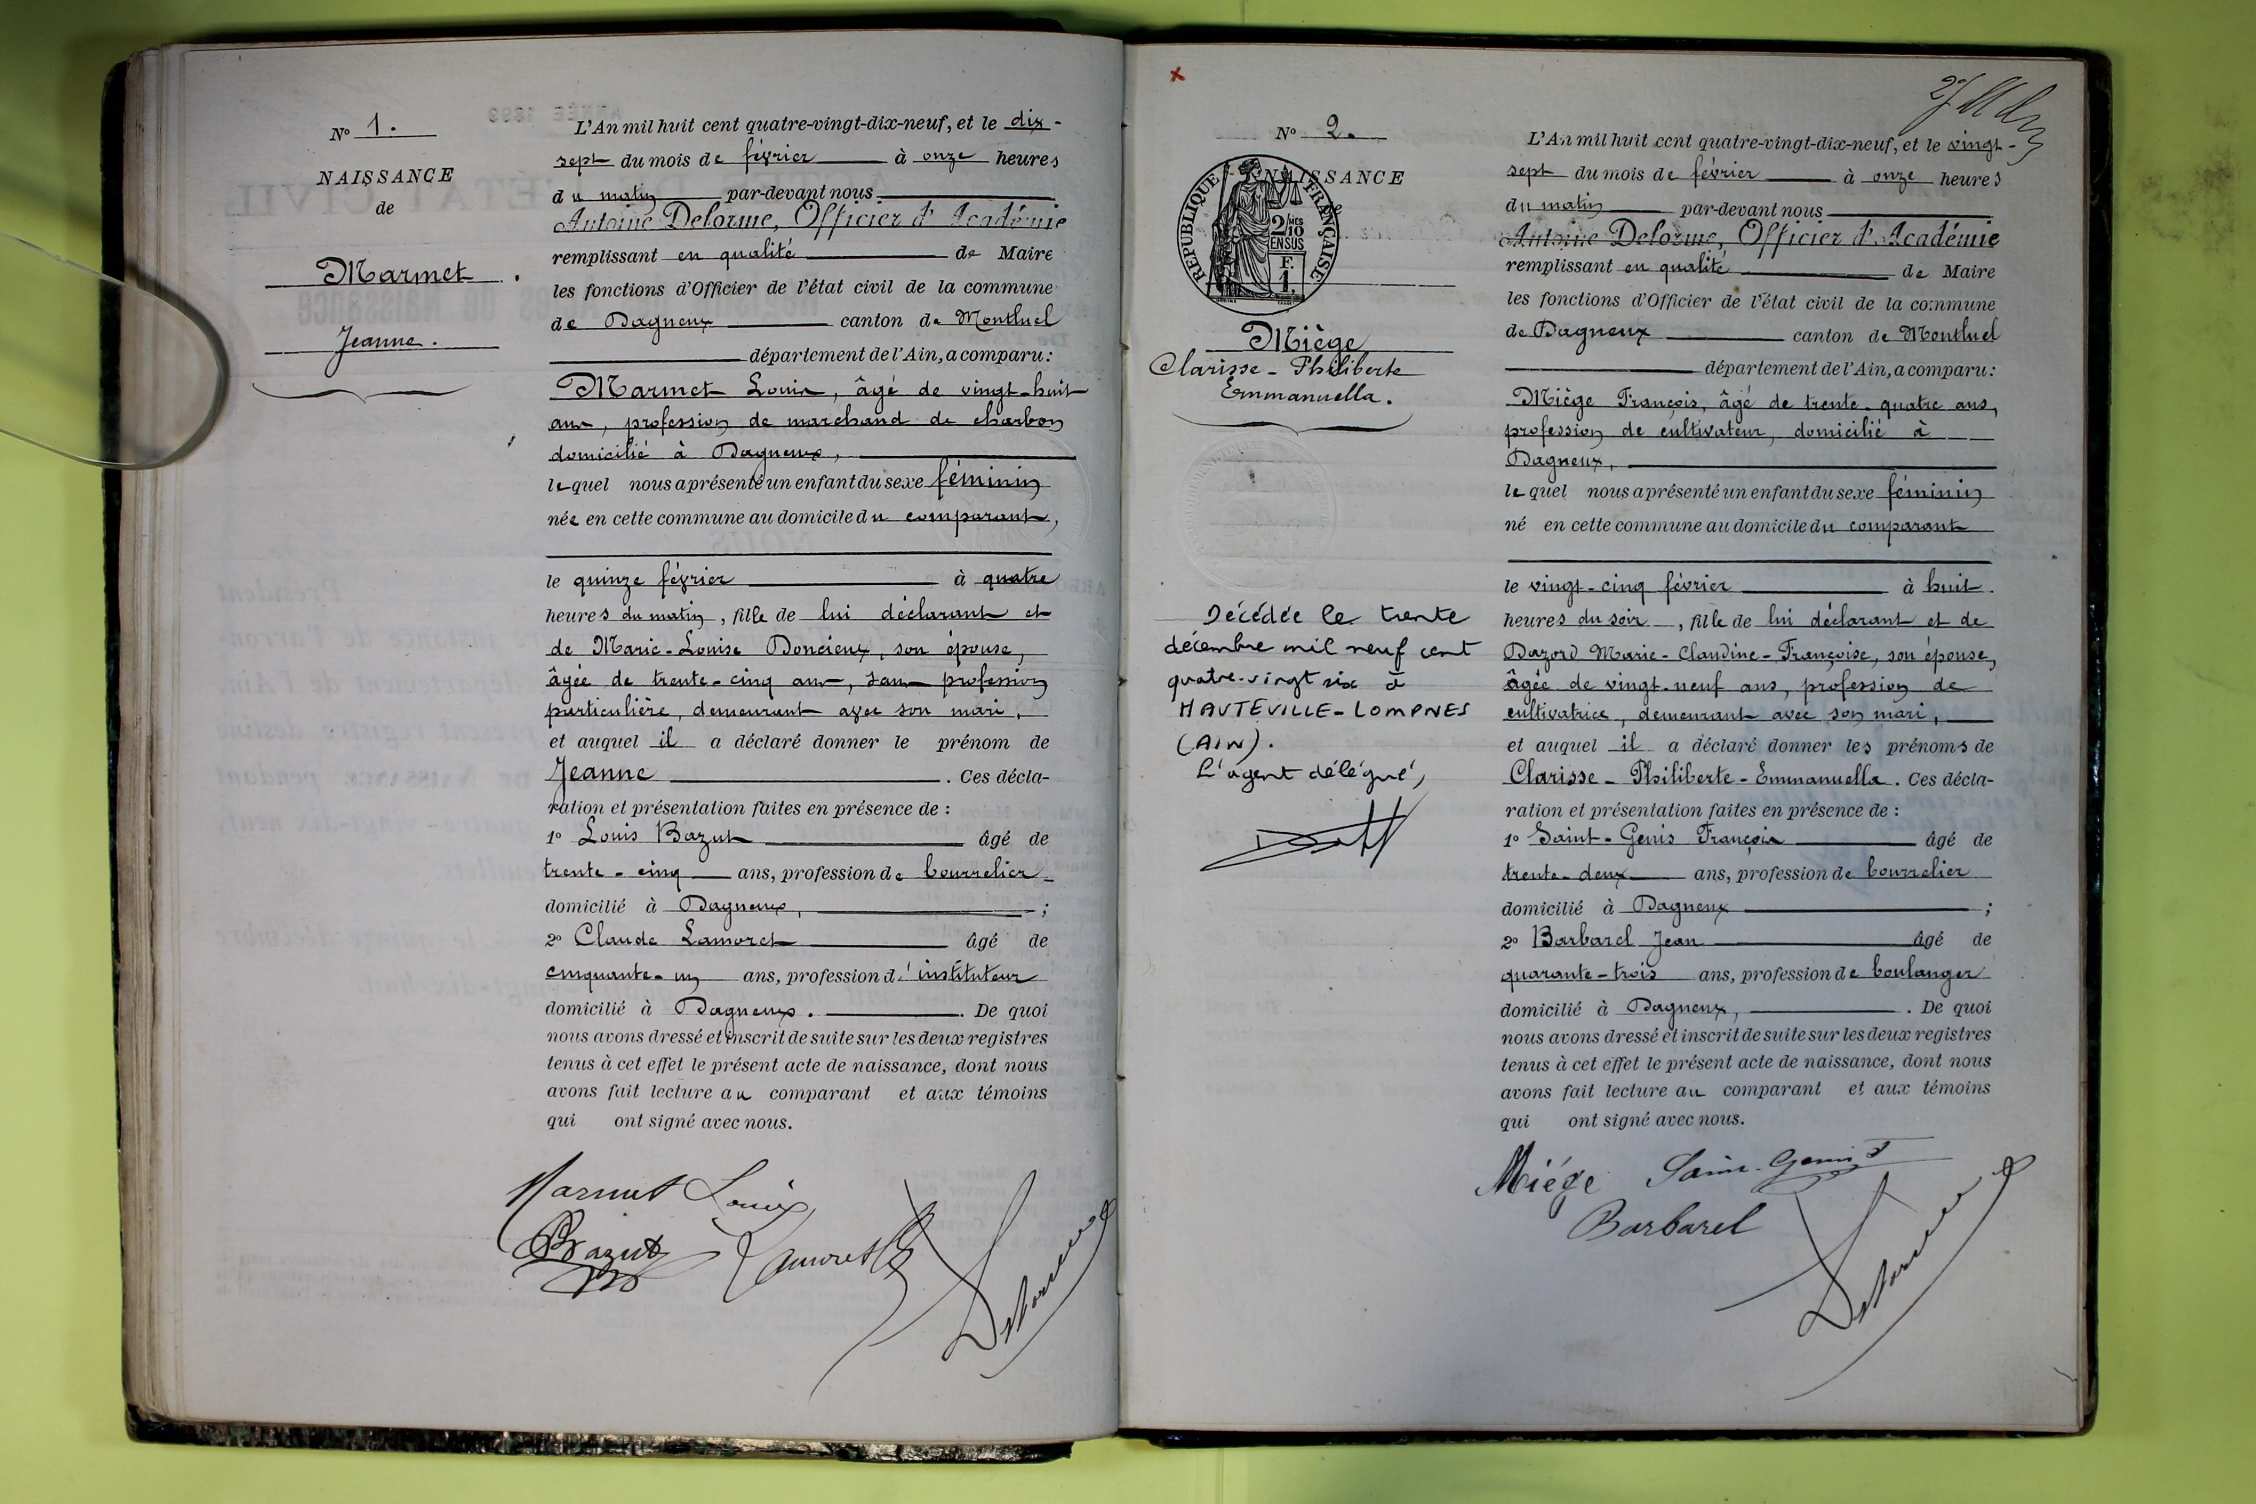 N° 1.
NAISSANCE
de
Marmet.
Jeanne.
L'An mil huit cent quatre-vingt-dix-neuf, et le dix-
sept du mois de février à onze heures
du matin par-devant nous
Antoine Delorme, Officier d'Académie
remplissant en qualité de Maire
les fonctions d'Officier de l'état civil de la commune
de Dagneux canton de Montluel
département de l'Ain, a comparu:
Marmet Louis, âgé de vingt-huit
ans, profession de marchand de charbon
domicilié à Dagneux,
lequel nous a présenté un enfant du sexe féminin
née en cette commune au domicile du comparant,
le quinze février à quatre
heures du matin, fille de lui déclarant et
de Marie-Louise Doncieux, son épouse,
âgée de trente-cinq ans, sans profession
particulière, demeurant avec son mari,
et auquel il a déclaré donner le prénom de
Jeanne. Ces décla-
ration et présentation faites en présence de :
1° Louis Bazut âgé de
trente-cinq ans, profession de bourrelier
domicilié à Dagneux, ;
2° Claude Lamoret âgé de
cinquante-un ans, profession d'instituteur
domicilié à Dagneux. . De quoi
nous avons dressé et inscrit de suite sur les deux registres
tenus à cet effet le présent acte de naissance, dont nous
avons fait lecture au comparant et aux témoins
qui ont signé avec nous.
Marmet Louis
Bazut Lamoret Delorme
N° 2.
NAISSANCE
REPUBLIQUE FRANÇAISE
2/10 MES
EN SUS
F.
1.
Miège
Clarisse-Philiberte
Emmanuella.
Décédée le trente
décembre mil neuf cent
quatre-vingt six à
HAUTEVILLE-LOMPNES
(AIN).
L'agent délégué,
L'An mil huit cent quatre-vingt-dix-neuf, et le vingt-
sept du mois de février à onze heures
du matin par-devant nous
Antoine Delorme, Officier d'Académie
remplissant en qualité de Maire
les fonctions d'Officier de l'état civil de la commune
de Dagneux canton de Montluel
département de l'Ain, a comparu:
Miège François, âgé de trente-quatre ans,
profession de cultivateur, domicilié à
Dagneux,
lequel nous a présenté un enfant du sexe féminin
né en cette commune au domicile du comparant
le vingt-cinq février à huit
heures du soir, fille de lui déclarant et de
Dazord Marie-Claudine-Françoise, son épouse,
âgée de vingt-neuf ans, profession de
cultivatrice, demeurant avec son mari,
et auquel il a déclaré donner les prénoms de
Clarisse-Philiberte-Emmanuella. Ces décla-
ration et présentation faites en présence de :
1° Saint-Genis François âgé de
trente-deux ans, profession de bourrelier
domicilié à Dagneux ;
2° Barbarel Jean âgé de
quarante-trois ans, profession de boulanger
domicilié à Dagneux, . De quoi
nous avons dressé et inscrit de suite sur les deux registres
tenus à cet effet le présent acte de naissance, dont nous
avons fait lecture au comparant et aux témoins
qui ont signé avec nous.
Miége Saint-Genis
Barbarel Delorme